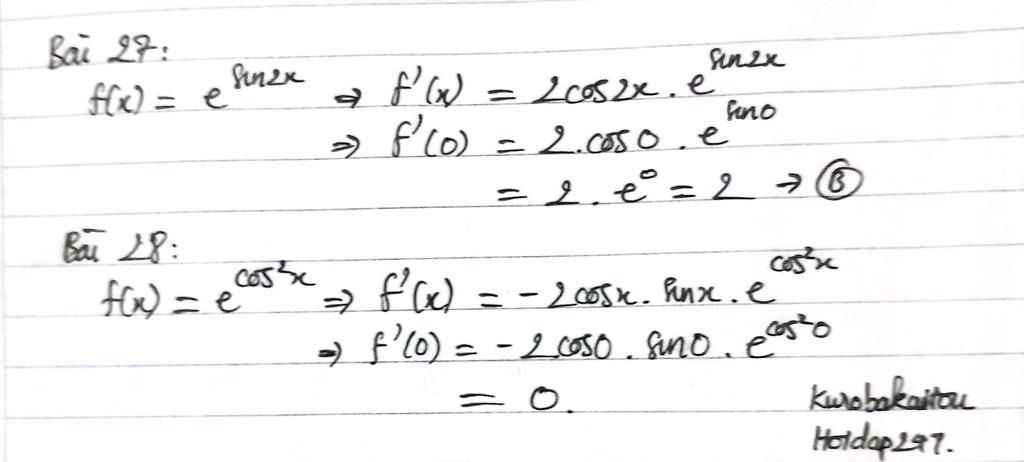 Bài 27:
f(x) = e^{sin2x} ⇒ f'(x) = 2cos2x . e^{sin2x}
⇒ f'(0) = 2.cos0 . e^{sin0}
= 2 . e^0 = 2 → Ⓑ
Bài 28:
f(x) = e^{cos²x} ⇒ f'(x) = - 2cosx . sinx . e^{cos²x}
⇒ f'(0) = - 2.cos0 . sin0 . e^{cos²0}
= 0.
Kurobakaitou
Hoidap247.